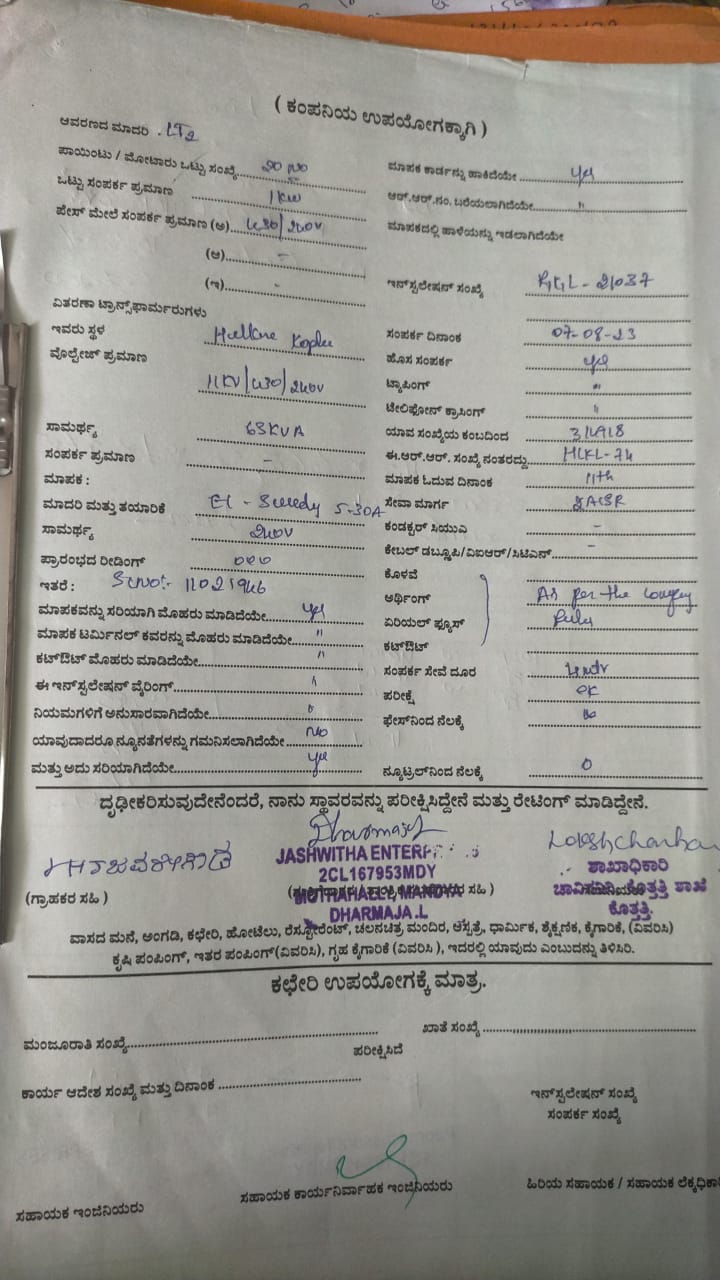 ( ಕಂಪನಿಯ ಉಪಯೋಗಕ್ಕಾಗಿ )
ಆವರಣದ ಮಾದರಿ . LT2
ಪಾಯಿಂಟು / ಮೋಟಾರು ಒಟ್ಟು ಸಂಖ್ಯೆ 20 No
ಒಟ್ಟು ಸಂಪರ್ಕ ಪ್ರಮಾಣ 1 KW
ಫೇಸ್ ಮೇಲೆ ಸಂಪರ್ಕ ಪ್ರಮಾಣ (ಅ) 430/240V
(ಆ) -
(ಇ) -
ವಿತರಣಾ ಟ್ರಾನ್ಸ್‌ಫಾರ್ಮರುಗಳು
ಇವರು ಸ್ಥಳ
ವೊಲ್ಟೇಜ್ ಪ್ರಮಾಣ
11KV/430/240V
ಸಾಮರ್ಥ್ಯ 63KVA
ಸಂಪರ್ಕ ಪ್ರಮಾಣ -
ಮಾಪಕ :
ಮಾದರಿ ಮತ್ತು ತಯಾರಿಕೆ 5-30A
ಸಾಮರ್ಥ್ಯ 240V
ಪ್ರಾರಂಭದ ರೀಡಿಂಗ್ 000
ಇತರೆ : 11021946
ಮಾಪಕವನ್ನು ಸರಿಯಾಗಿ ಮೊಹರು ಮಾಡಿದೆಯೇ yes
ಮಾಪಕ ಟರ್ಮಿನಲ್ ಕವರನ್ನು ಮೊಹರು ಮಾಡಿದೆಯೇ "
ಕಟ್‌ಔಟ್ ಮೊಹರು ಮಾಡಿದೆಯೇ "
ಈ ಇನ್‌ಸ್ಟಲೇಷನ್ ವೈರಿಂಗ್
ನಿಯಮಗಳಿಗೆ ಅನುಸಾರವಾಗಿದೆಯೇ
ಯಾವುದಾದರೂ ನ್ಯೂನತೆಗಳನ್ನು ಗಮನಿಸಲಾಗಿದೆಯೇ No
ಮತ್ತು ಅದು ಸರಿಯಾಗಿದೆಯೇ yes
ಮಾಪಕ ಕಾರ್ಡನ್ನು ಹಾಕಿದೆಯೇ yes
ಆರ್.ಆರ್.ನಂ. ಬರೆಯಲಾಗಿದೆಯೇ "
ಮಾಪಕದಲ್ಲಿ ಹಾಳೆಯನ್ನು ಇಡಲಾಗಿದೆಯೇ
ಇನ್‌ಸ್ಟಲೇಷನ್ ಸಂಖ್ಯೆ
ಸಂಪರ್ಕ ದಿನಾಂಕ 07-08-23
ಹೊಸ ಸಂಪರ್ಕ yes
ಟ್ಯಾಪಿಂಗ್ "
ಟೇಲಿಫೋನ್ ಕ್ರಾಸಿಂಗ್ "
ಯಾವ ಸಂಖ್ಯೆಯ ಕಂಬದಿಂದ
ಈ.ಆರ್.ಆರ್. ಸಂಖ್ಯೆ ನಂತರದ್ದು
ಮಾಪಕ ಓದುವ ದಿನಾಂಕ 11th
ಸೇವಾ ಮಾರ್ಗ
ಕಂಡಕ್ಟರ್ ಸಿಯುಎ -
ಕೇಬಲ್ ಡಬ್ಲ್ಯೂಪಿ/ವಿಐಆರ್/ಸಿಟಿಎಸ್ -
ಕೊಳವೆ
ಅರ್ಥಿಂಗ್ As per the company
ಏರಿಯಲ್ ಫ್ಯೂಸ್ Rules
ಕಟ್‌ಔಟ್
ಸಂಪರ್ಕ ಸೇವೆ ದೂರ
ಪರೀಕ್ಷೆ OK
ಫೇಸ್‌ನಿಂದ ನೆಲಕ್ಕೆ
ನ್ಯೂಟ್ರಲ್‌ನಿಂದ ನೆಲಕ್ಕೆ 0
ದೃಢೀಕರಿಸುವುದೇನೆಂದರೆ, ನಾನು ಸ್ಥಾವರವನ್ನು ಪರೀಕ್ಷಿಸಿದ್ದೇನೆ ಮತ್ತು ರೇಟಿಂಗ್ ಮಾಡಿದ್ದೇನೆ.
JASHWITHA
2CL167953MDY
MANDYA
DHARMAJA.L
(ಗ್ರಾಹಕರ ಸಹಿ )
ಸಹಿ )
ಶಾಖಾಧಿಕಾರಿ
ಕೊತ್ತತ್ತಿ ಶಾಖೆ
ಕೊತ್ತತ್ತಿ.
ವಾಸದ ಮನೆ, ಅಂಗಡಿ, ಕಛೇರಿ, ಹೋಟೆಲು, ರೆಸ್ಟೋರೆಂಟ್, ಚಲನಚಿತ್ರ ಮಂದಿರ, ಆಸ್ಪತ್ರೆ, ಧಾರ್ಮಿಕ, ಶೈಕ್ಷಣಿಕ, ಕೈಗಾರಿಕೆ, (ವಿವರಿಸಿ)
ಕೃಷಿ ಪಂಪಿಂಗ್, ಇತರ ಪಂಪಿಂಗ್(ವಿವರಿಸಿ), ಗೃಹ ಕೈಗಾರಿಕೆ (ವಿವರಿಸಿ ), ಇದರಲ್ಲಿ ಯಾವುದು ಎಂಬುದನ್ನು ತಿಳಿಸಿರಿ.
ಕಛೇರಿ ಉಪಯೋಗಕ್ಕೆ ಮಾತ್ರ.
ಮಂಜೂರಾತಿ ಸಂಖ್ಯೆ
ಖಾತೆ ಸಂಖ್ಯೆ
ಪರೀಕ್ಷಿಸಿದೆ
ಕಾರ್ಯ ಆದೇಶ ಸಂಖ್ಯೆ ಮತ್ತು ದಿನಾಂಕ
ಇನ್‌ಸ್ಟಲೇಷನ್ ಸಂಖ್ಯೆ
ಸಂಪರ್ಕ ಸಂಖ್ಯೆ
ಸಹಾಯಕ ಇಂಜಿನಿಯರು
ಸಹಾಯಕ ಕಾರ್ಯನಿರ್ವಾಹಕ ಇಂಜಿನಿಯರು
ಹಿರಿಯ ಸಹಾಯಕ / ಸಹಾಯಕ